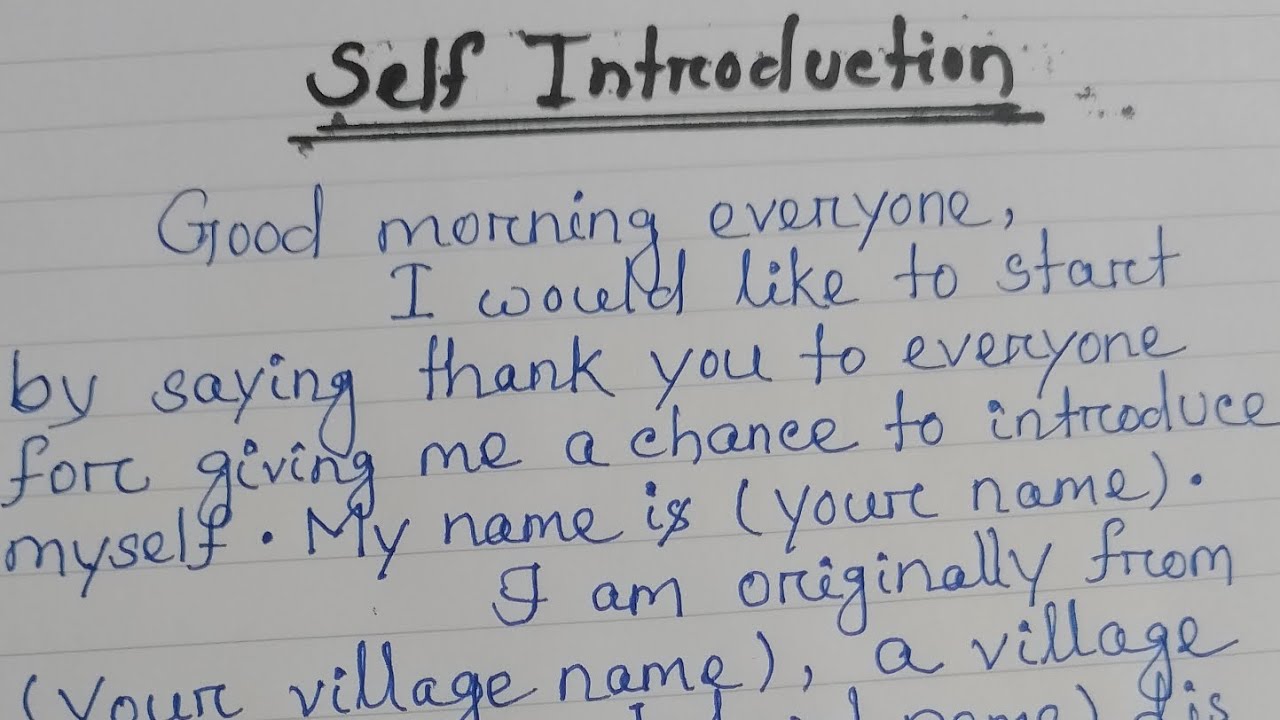 Self Introduction
Good morning everyone,
I would like to start
by saying thank you to everyone
for giving me a chance to introduce
myself. My name is (your name).
I am originally from
(Your village name), a village
name)